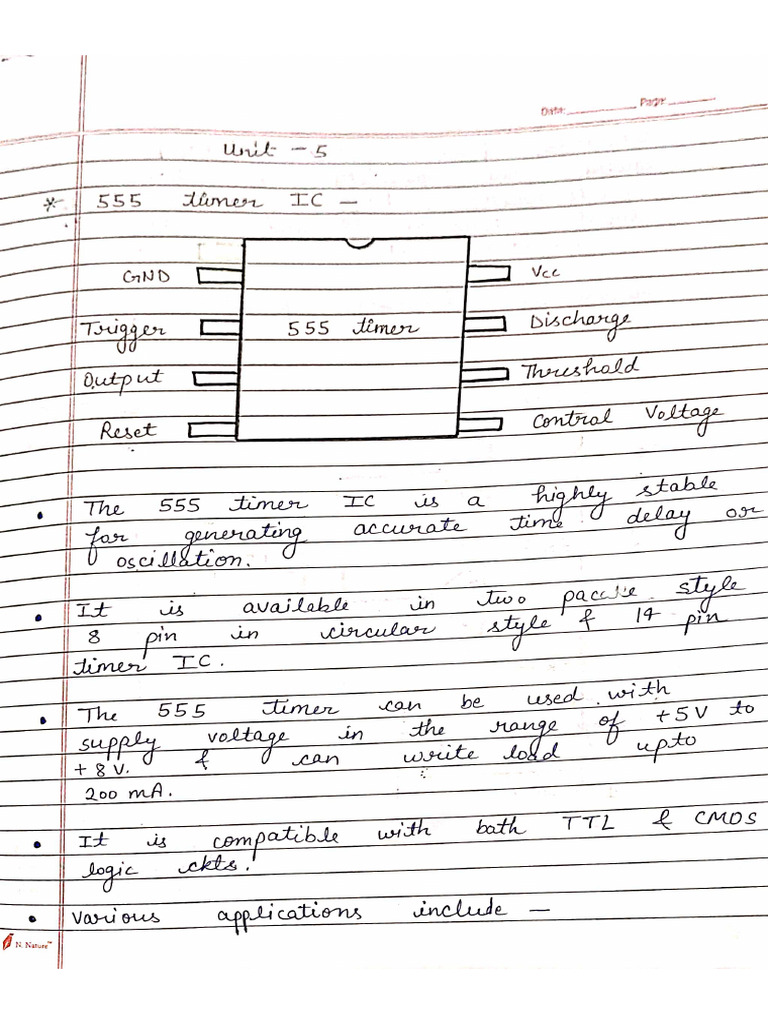 Date: Page:
Unit - 5
* 555 timer IC -
GND Vcc
Trigger 555 timer Discharge
Output Threshold
Reset Control Voltage
• The 555 timer IC is a highly stable
for generating accurate time delay or
oscillation.
• It is available in two style
8 pin in circular style & 14 pin
timer IC.
• The 555 timer can be used with
supply voltage in the range of +5V to
+ 8 V. & can write load upto
200 mA.
• It is compatible with bath TTL & CMOS
logic ckts.
• Various applications include -
N. Nature™